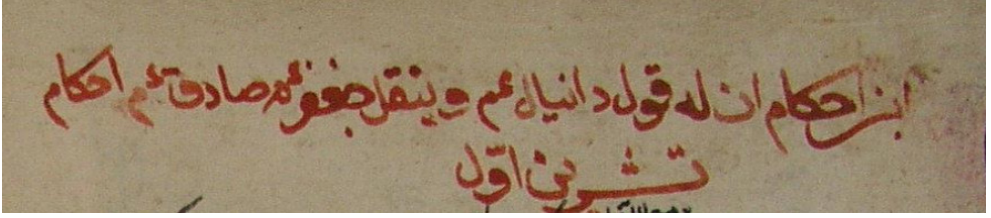 ابن احكام ان له قول دانيال عم وينقل جعفر عم صادق عم احكام
تشرين اول